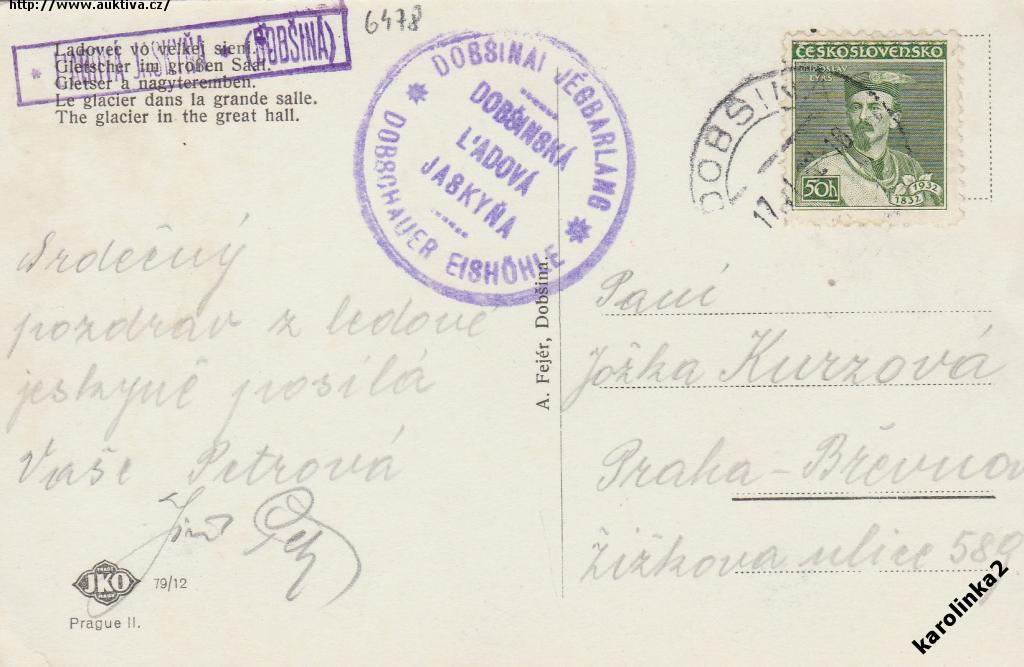 http://www.auktiva.cz/
6478
* ĽADOVÁ JASKYŇA * (DOBŠINÁ)
Ladovec vo velkej sieni.
Gletscher im großen Saal.
Gletser a nagyteremben.
Le glacier dans la grande salle.
The glacier in the great hall.
DOBSINAI JÉGBARLANG
DOBSCHAUER EISHÖHLE
DOBŠINSKÁ
ĽADOVÁ
JASKYŇA
ČESKOSLOVENSKO
50h
1832 1932
DOBŠINÁ
Srdečný
pozdrav z ledové
jeskyně posílá
Vaše Petrová
A. Fejér, Dobšina.
Paní
Jožka Kurzová
Praha-Břevnov
Žižkova ulice 589
TRADE
JKO
MARK
79/12
Prague II.
karolinka2